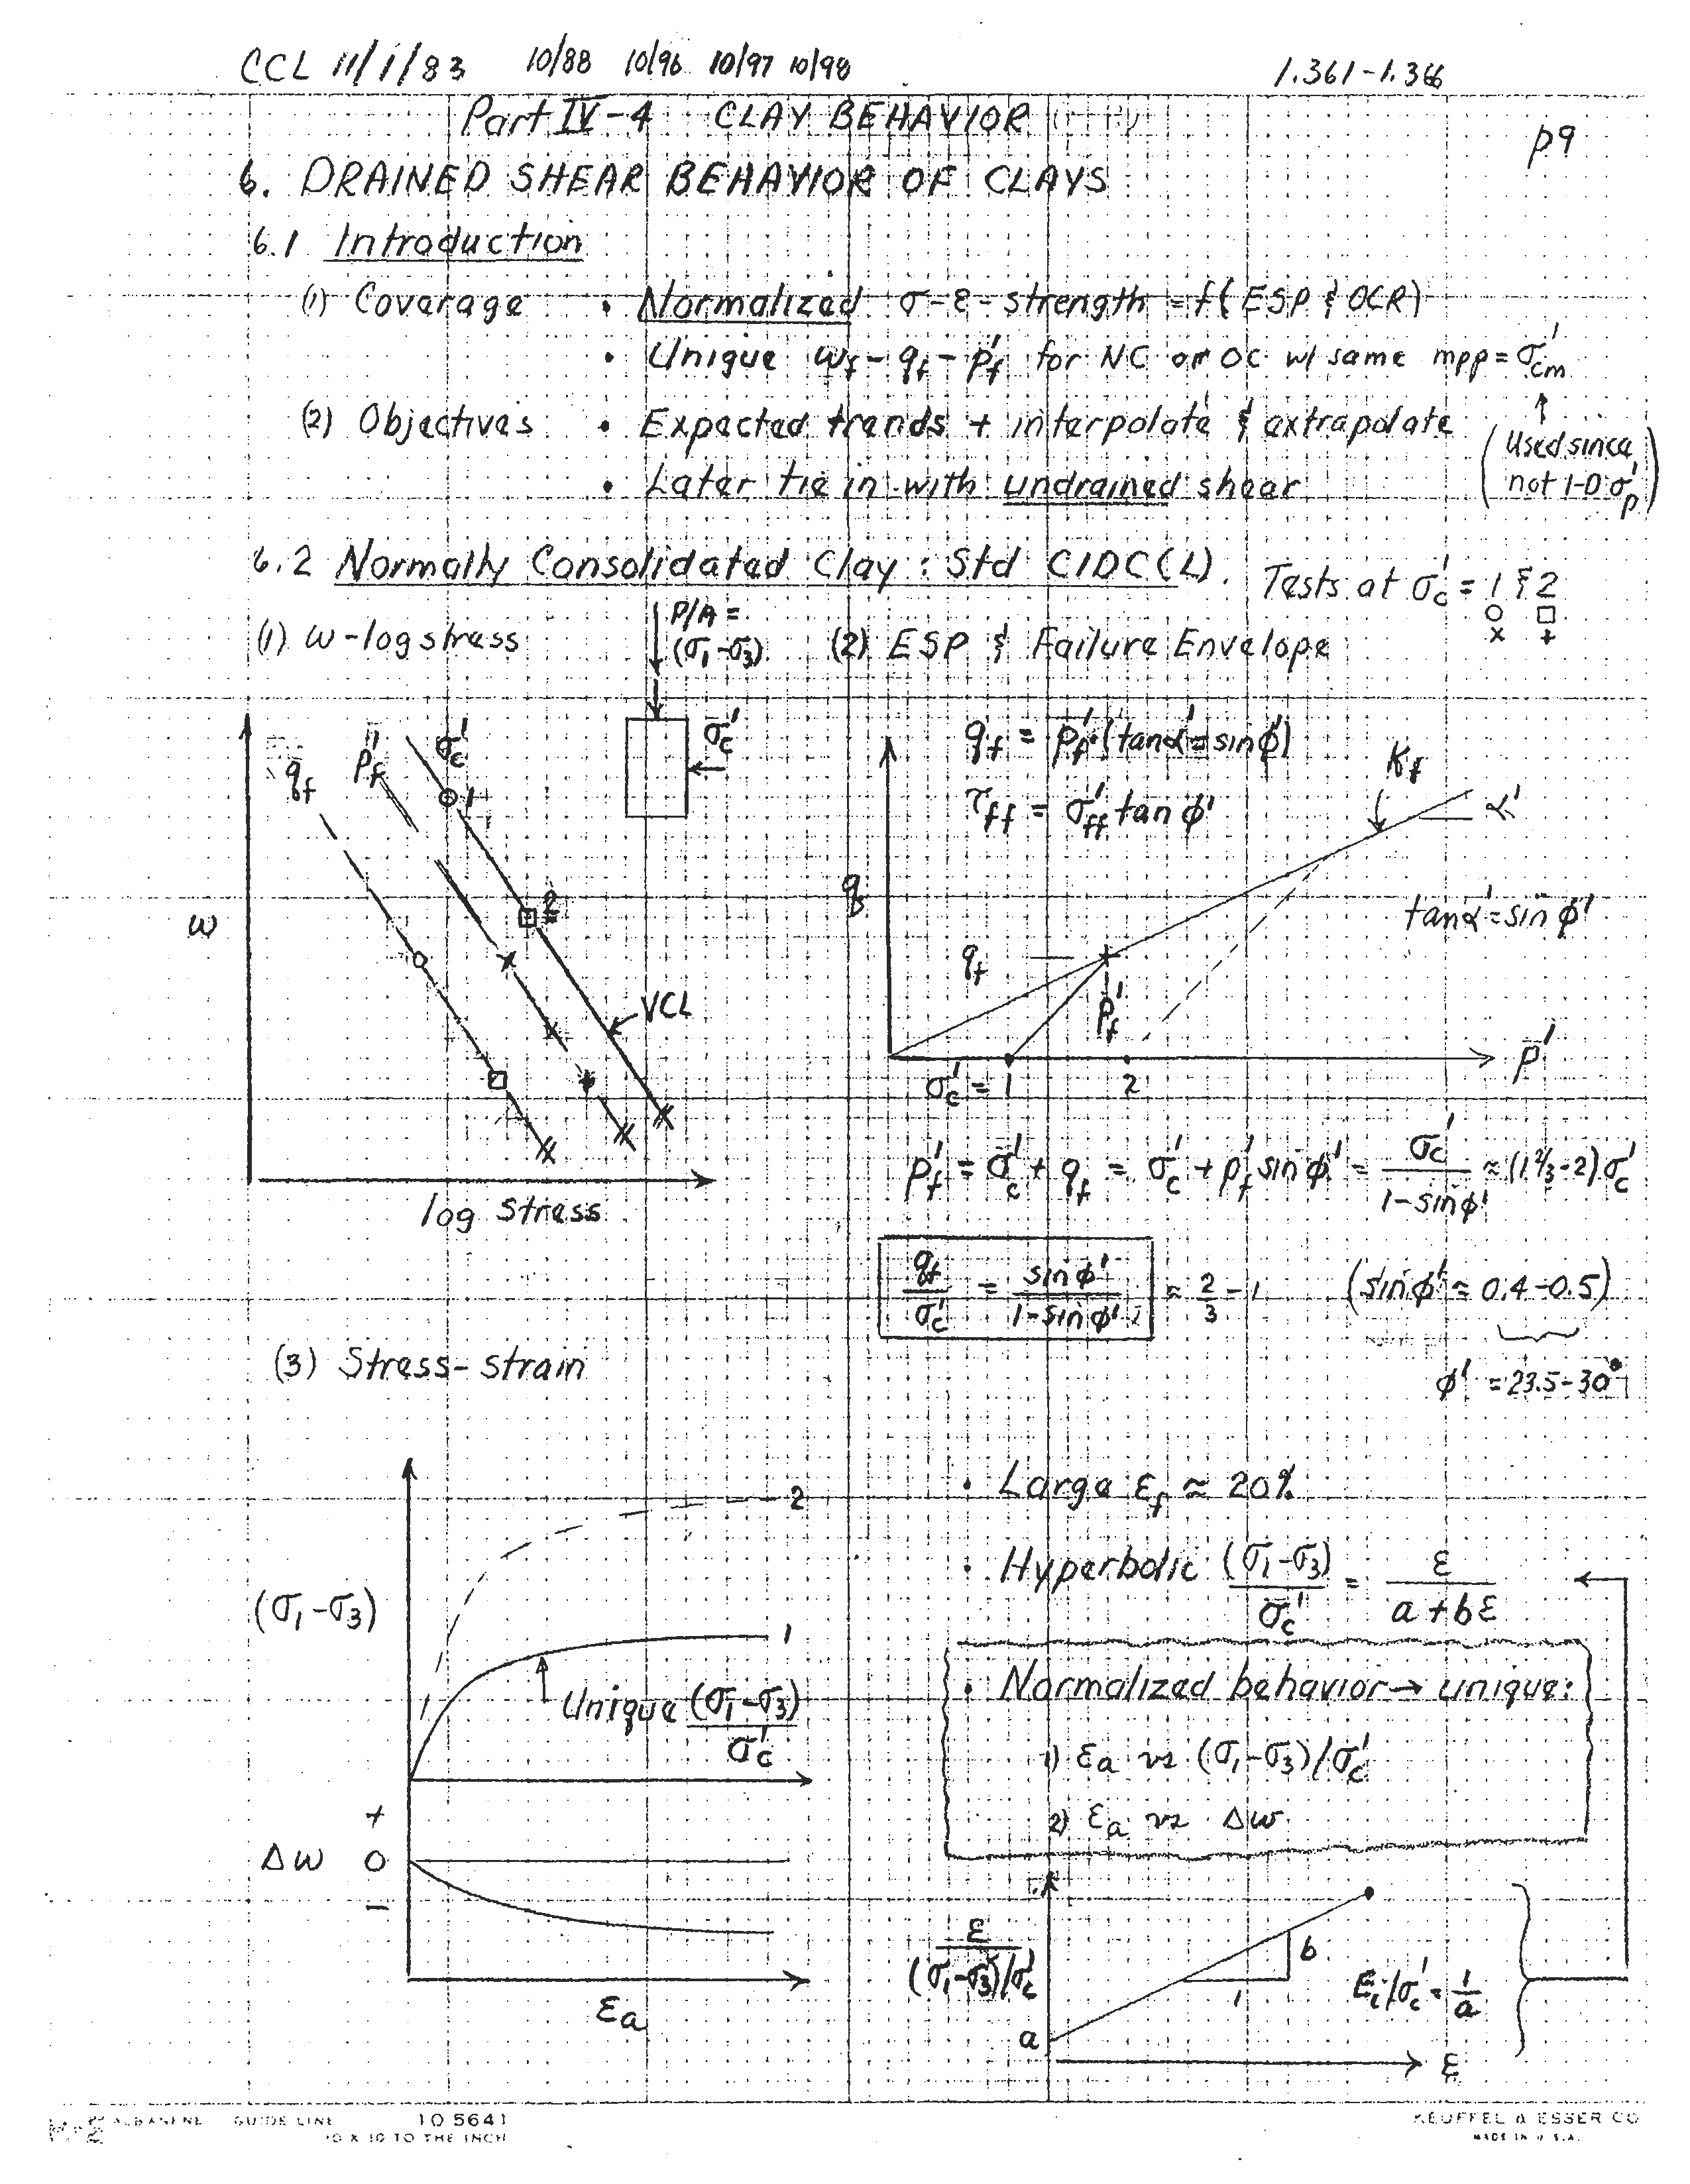 CCL 11/1/83 10/88 10/96 10/97 10/98 1.361-1.366
Part IV-4 CLAY BEHAVIOR
p9
6. DRAINED SHEAR BEHAVIOR OF CLAYS
6.1 Introduction
(1) Coverage • Normalized σ-ε-strength = f(ESP & OCR)
• Unique wf - qf - p'f for NC or OC w/ same mpp = σ'cm
(2) Objectives • Expected trends + interpolate & extrapolate
↑
(Used since
not 1-D σ'p)
• Later tie in with undrained shear
6.2 Normally Consolidated Clay: Std CIDC(L). Tests at σ'c = 1 & 2
○ □
x +
(1) w-log stress
P/A =
(σ1-σ3)
(2) ESP & Failure Envelope
qf p'f σ'c
1
2
VCL
w
log stress
σ'c
qf = p'f (tanα' = sinφ')
τff = σ'ff tan φ'
Kf
α'
tanα' = sin φ'
q
qf
p'f
σ'c = 1 2
p'
p'f = σ'c + qf = σ'c + p'f sin φ' = σ'c / (1-sinφ') ≈ (1 2/3 - 2) σ'c
qf / σ'c = sin φ' / (1-sin φ') ≈ 2/3 - 1 (sin φ' ≈ 0.4-0.5)
φ' = 23.5-30°
(3) Stress-strain
2
(σ1-σ3)
1
Unique (σ1-σ3) / σ'c
+
Δw 0
-
εa
• Large εf ≈ 20%
• Hyperbolic (σ1-σ3) / σ'c = ε / (a + bε) ←
• Normalized behavior → unique:
1) εa vs (σ1-σ3)/σ'c
2) εa vs Δw
ε / (σ1-σ3)/σ'c
b
1
Ei/σ'c = 1/a
a
ε
K+E ALBANENE GUIDE LINE 10 5641
10 X 10 TO THE INCH
KEUFFEL & ESSER CO
MADE IN U.S.A.